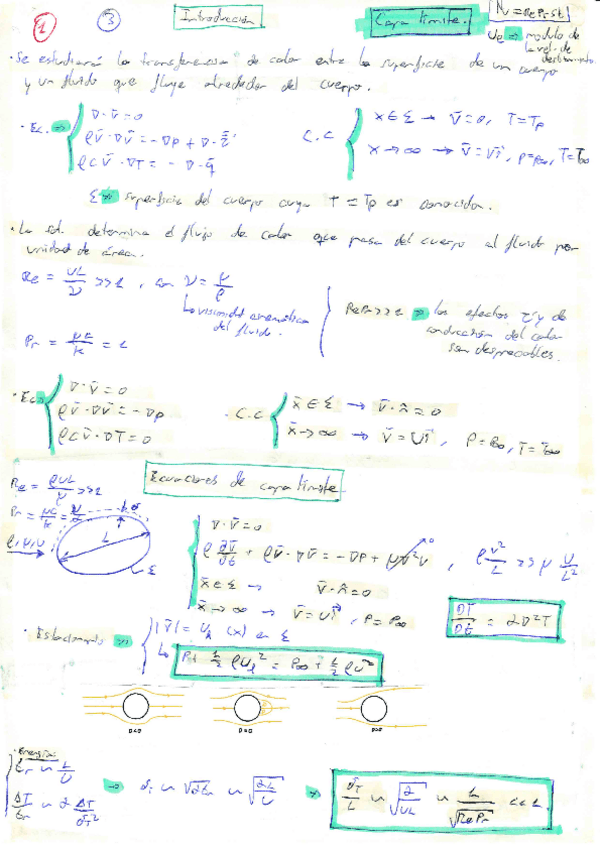 1 3 Introducción Capa límite. N = RePrSt
Ue → modulo de la vel. de deslizamiento.
· Se estudiará la transferencia de calor entre la superficie de un cuerpo
y un fluido que fluye alrededor del cuerpo.
· Ec. ⇒ ∇·v̄ = 0
ρv̄·∇v̄ = -∇p + ∇·τ̄'
ρc v̄·∇T = -∇·q̄
C.C x̄ ∈ Σ → v̄ = 0, T = Tp
x → ∞ → v̄ = Uī, p = p∞, T = T∞
Σ ⇒ superficie del cuerpo cuya T = Tp es conocida.
· La sol. determina el flujo de calor que pasa del cuerpo al fluido por
unidad de área.
Re = UL/ν >> 1, con ν = μ/ρ
↳ viscosidad cinemática
del fluido.
Pr = μc/k = 1
RePr >> 1 ⇒ los efectos τ' y de
conducción del calor
son despreciables.
· Ec ⇒ ∇·v̄ = 0
ρv̄·∇v̄ = -∇p
ρc v̄·∇T = 0
· C.C x̄ ∈ Σ → v̄·n̄ = 0
x̄ → ∞ → v̄ = Uī, p = p∞, T = T∞
Ecuaciones de capa límite.
Re = ρUL/μ >> 1
L
Σ
∇·v̄ = 0
ρ ∂v̄/∂t + ρv̄·∇v̄ = -∇p + μ∇²v 0, ρ v²/L >> μ U/L²
x̄ ∈ Σ → v̄·n̄ = 0
x̄ → ∞ → v̄ = Uī, p = p∞
DT/Dt = α∇²T
· Estacionario ⇒ |v̄| = Ue (x) en Σ
↳ P + 1/2 ρUe² = P∞ + 1/2 ρU²
· Energía:
tr ~ L/U
ΔT/tr ~ α ΔT/δT²
⇒ δT ~ √αtr ~ √αL/U
⇒ δT/L ~ √α/UL ~ 1/√RePr << 1.